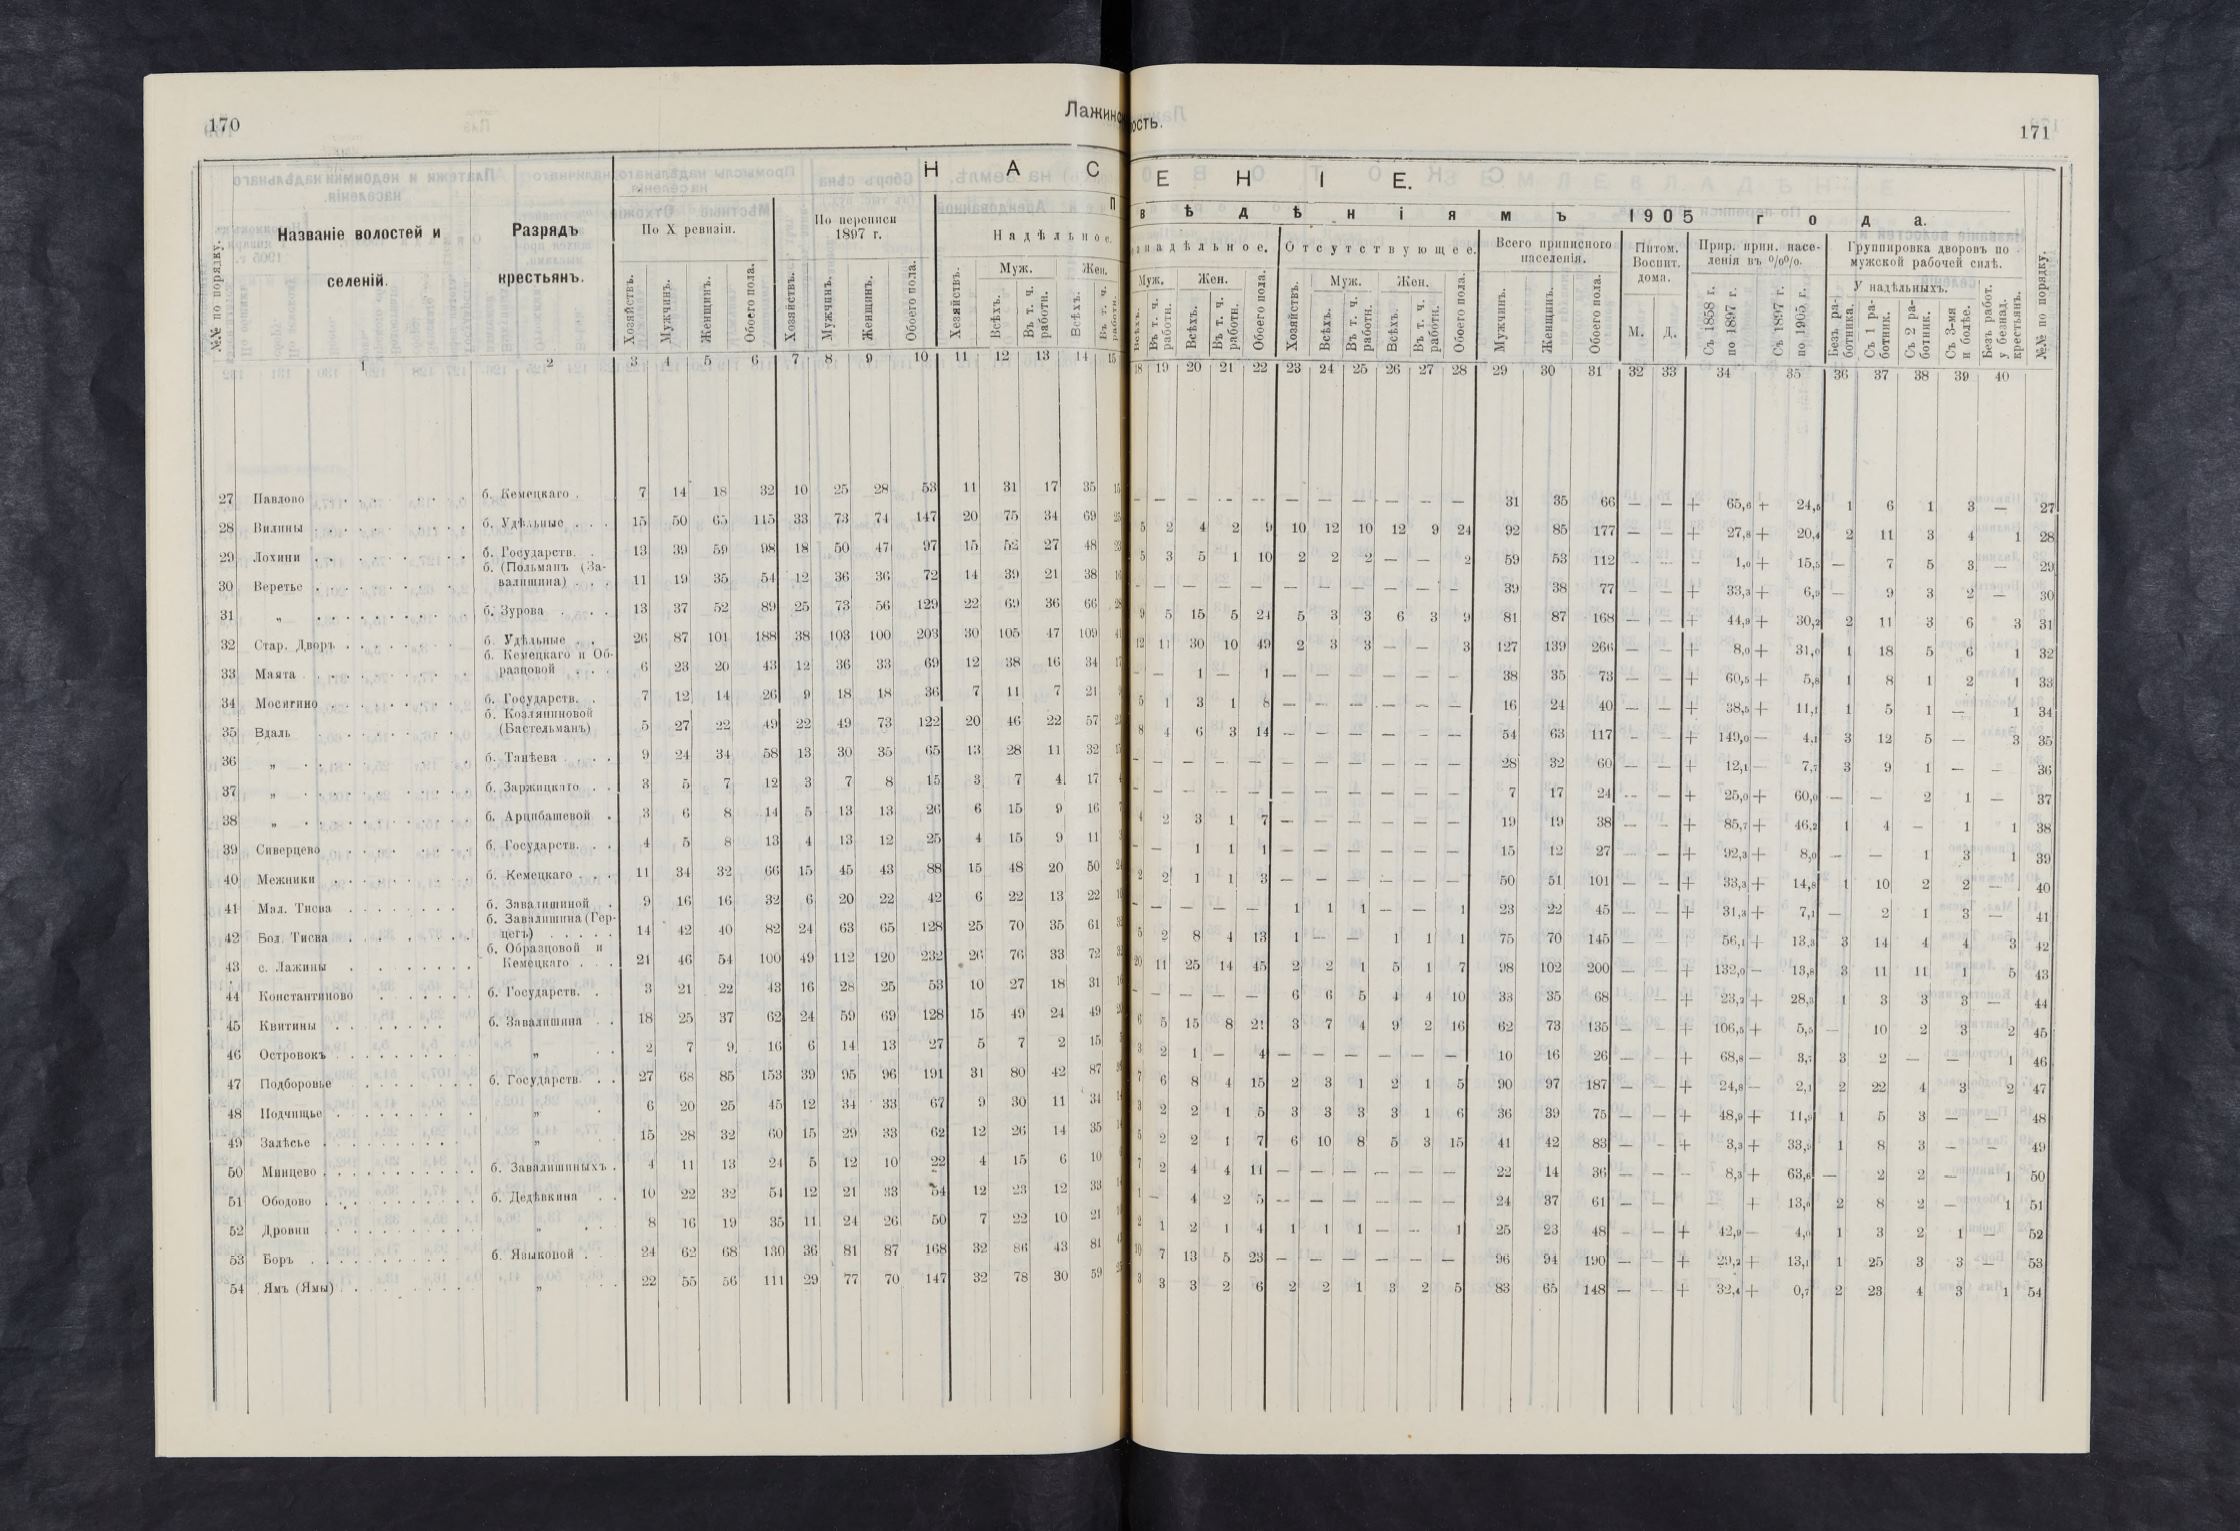 170
Лажинс
ость.
171
Н А С
Е Н І Е.
№№ по порядку.
Названіе волостей и
селеній.
Разрядъ
крестьянъ.
По X ревизіи.
По переписи
1897 г.
П
в ѣ д ѣ н і я м ъ 1905 г о д а.
Надѣльное.
надѣльное.
Отсутствующее.
Всего приписного
населенія.
Питом.
Воспит.
дома.
Прир. прип. насе-
ленія въ %%.
Группировка дворовъ по
мужской рабочей силѣ.
У надѣльныхъ.
Муж. Жен. Муж. Жен. Муж. Жен.
Хозяйствъ. Мужчинъ. Женщинъ. Обоего пола. Хозяйствъ. Мужчинъ. Женщинъ. Обоего пола. Хозяйствъ. Всѣхъ. Въ т. ч. работн. Всѣхъ. Въ т. ч. работн.
Всѣхъ. Въ т. ч. работн. Всѣхъ. Въ т. ч. работн. Обоего пола. Хозяйствъ. Всѣхъ. Въ т. ч. работн. Всѣхъ. Въ т. ч. работн. Обоего пола. Мужчинъ. Женщинъ. Обоего пола. М. Д. Съ 1858 г. по 1897 г. Съ 1897 г. по 1905 г. Безъ работника. Съ 1 работник. Съ 2 работник. Съ 3-мя и болѣе. Безъ работ. у безнад. крестьянъ. №№ по порядку.
1 2 3 4 5 6 7 8 9 10 11 12 13 14 15
18 19 20 21 22 23 24 25 26 27 28 29 30 31 32 33 34 35 36 37 38 39 40
27 Павлово б. Кемецкаго 7 14 18 32 10 25 28 53 11 31 17 35
— — — — — — — — — — — 31 35 66 — — + 65,6 + 24,5 1 6 1 3 — 27
28 Вилины б. Удѣльные 15 50 65 115 33 73 74 147 20 75 34 69
5 2 4 2 9 10 12 10 12 9 24 92 85 177 — — + 27,8 + 20,4 2 11 3 4 1 28
29 Лохини б. Государств. 13 39 59 98 18 50 47 97 15 52 27 48
5 3 5 1 10 2 2 2 — — 2 59 53 112 — — — 1,0 + 15,5 — 7 5 3 — 29
30 Веретье б. (Польманъ (За-
валишина) 11 19 35 54 12 36 36 72 14 39 21 38
— — — — — — — — — — — 39 38 77 — — + 33,3 + 6,9 — 9 3 2 — 30
31 „ б. Зурова 13 37 52 89 25 73 56 129 22 69 36 66
9 5 15 5 24 5 3 3 6 3 9 81 87 168 — — + 44,9 + 30,2 2 11 3 6 3 31
32 Стар. Дворъ б. Удѣльные 26 87 101 188 38 103 100 203 30 105 47 109
12 11 30 10 49 2 3 3 — — 3 127 139 266 — — + 8,0 + 31,0 1 18 5 6 1 32
33 Маята б. Кемецкаго и Об-
разцовой 6 23 20 43 12 36 33 69 12 38 16 34
— — 1 — 1 — — — — — — 38 35 73 — — + 60,5 + 5,8 1 8 1 2 1 33
34 Мосягино б. Государств. 7 12 14 26 9 18 18 36 7 11 7 21
5 1 3 1 8 — — — — — — 16 24 40 — — + 38,5 + 11,1 1 5 1 — 1 34
35 Вдаль б. Козляниновой
(Бастельманъ) 5 27 22 49 22 49 73 122 20 46 22 57
8 4 6 3 14 — — — — — — 54 63 117 — — + 149,0 — 4,1 3 12 5 — 3 35
36 „ б. Танѣева 9 24 34 58 13 30 35 65 13 28 11 32
— — — — — — — — — — — 28 32 60 — — + 12,1 — 7,7 3 9 1 — — 36
37 „ б. Заржицкаго 3 5 7 12 3 7 8 15 3 7 4 17
— — — — — — — — — — — 7 17 24 — — + 25,0 + 60,0 — — 2 1 — 37
38 „ б. Арцибашевой 3 6 8 14 5 13 13 26 6 15 9 16
4 2 3 1 7 — — — — — — 19 19 38 — — + 85,7 + 46,2 1 4 — 1 1 38
39 Сиверцево б. Государств. 4 5 8 13 4 13 12 25 4 15 9 11
— — 1 1 1 — — — — — — 15 12 27 — — + 92,3 + 8,0 — — 1 3 1 39
40 Межники б. Кемецкаго 11 34 32 66 15 45 43 88 15 48 20 50
2 2 1 1 3 — — — — — — 50 51 101 — — + 33,3 + 14,8 1 10 2 2 — 40
41 Мал. Тисва б. Завалишиной 9 16 16 32 6 20 22 42 6 22 13 22
— — — — — 1 1 1 — — 1 23 22 45 — — + 31,3 + 7,1 — 2 1 3 — 41
42 Бол. Тисва б. Завалишина (Гер-
цегъ) 14 42 40 82 24 63 65 128 25 70 35 61
5 2 8 4 13 1 — — 1 1 1 75 70 145 — — 56,1 + 13,3 3 14 4 4 3 42
43 с. Лажины б. Образцовой и
Кемецкаго 21 46 54 100 49 112 120 232 26 76 33 72
20 11 25 14 45 2 2 1 5 1 7 98 102 200 — — + 132,0 — 13,8 3 11 11 1 5 43
44 Константиново б. Государств. 3 21 22 43 16 28 25 53 10 27 18 31
— — — — — 6 6 5 4 4 10 33 35 68 — — + 23,2 + 28,3 1 3 3 3 — 44
45 Квитины б. Завалишина 18 25 37 62 24 59 69 128 15 49 24 49
6 5 15 8 21 3 7 4 9 2 16 62 73 135 — — + 106,5 + 5,5 — 10 2 3 2 45
46 Островокъ „ 2 7 9 16 6 14 13 27 5 7 2 15
3 2 1 — 4 — — — — — — 10 16 26 — — + 68,8 — 3,7 3 2 — — 1 46
47 Подборовье б. Государств. 27 68 85 153 39 95 96 191 31 80 42 87
7 6 8 4 15 2 3 1 2 1 5 90 97 187 — — + 24,8 — 2,1 2 22 4 3 2 47
48 Подчищье „ 6 20 25 45 12 34 33 67 9 30 11 34
3 2 2 1 5 3 3 3 3 1 6 36 39 75 — — + 48,9 + 11,9 1 5 3 — — 48
49 Залѣсье „ 15 28 32 60 15 29 33 62 12 26 14 35
5 2 2 1 7 6 10 8 5 3 15 41 42 83 — — + 3,3 + 33,9 1 8 3 — — 49
50 Минцево б. Завалишиныхъ 4 11 13 24 5 12 10 22 4 15 6 10
7 2 4 4 11 — — — — — — 22 14 36 — — — 8,3 + 63,6 — 2 2 — 1 50
51 Ободово б. Дедѣвкина 10 22 32 54 12 21 33 54 12 23 12 33
1 — 4 2 5 — — — — — — 24 37 61 — — — + 13,0 2 8 2 — 1 51
52 Дровни „ 8 16 19 35 11 24 26 50 7 22 10 21
2 1 2 1 4 1 1 1 — — 1 25 23 48 — — + 42,9 — 4,0 1 3 2 1 — 52
53 Боръ б. Языковой 24 62 68 130 36 81 87 168 32 86 43 81
10 7 13 5 23 — — — — — — 96 94 190 — — + 29,2 + 13,1 1 25 3 3 — 53
54 Ямъ (Ямы) „ 22 55 56 111 29 77 70 147 32 78 30 59
3 3 3 2 6 2 2 1 3 2 5 83 65 148 — — + 32,4 + 0,7 2 23 4 3 1 54